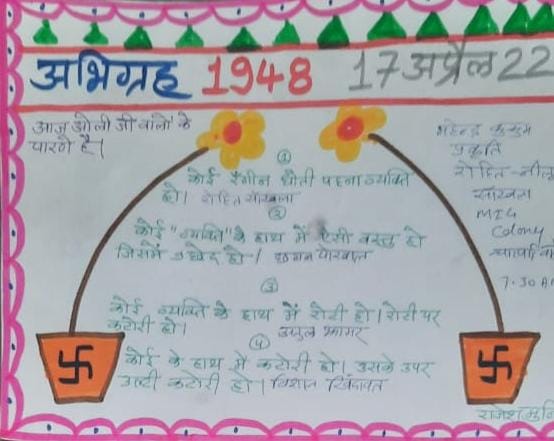 अभिग्रह 1948 17 अप्रैल 22
आज ओली जी वालो के
पारणे है।
①
कोई रंगीन धोती पहना व्यक्ति
हो। रोहित
②
कोई "व्यक्ति" के हाथ में ऐसी वस्तु हो
जिसमें छेद हो।
③
कोई व्यक्ति के हाथ में रोटी हो। रोटी पर
कटोरी हो।
④
कोई के हाथ में कटोरी हो। उसके उपर
उल्टी कटोरी हो। विशाल
महेन्द्र कुसुम
प्रकृति
रोहित-
MIG
Colony
7.30 A
राजेश मुनि